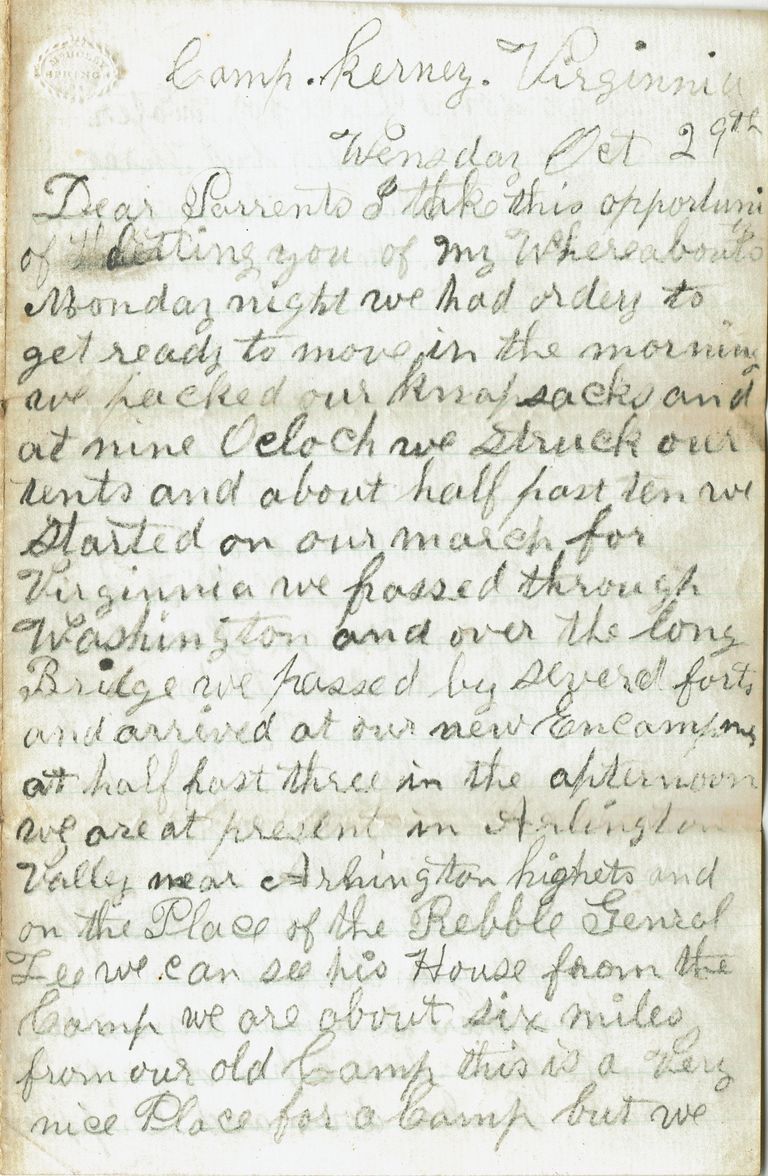 Camp. Kerney. Virginnia
Wensday Oct 29th
Dear Parrents I take this opportuni
of letting you of my Whereabouts
Monday night we had orders to
get ready to move in the morning
we packed our knapsacks and
at nine Ocloch we struck our
tents and about half past ten we
started on our march for
Virginnia we passed through
Washington and over the long
Bridge we passed by severel forts
and arrived at our new Encampme
at half past three in the afternoon
we are at present in Arlington
Valley near Arhington highets and
on the Place of the Rebble Genral
Lee we can see his House from the
Camp we are about six miles
from our old Camp this is a Very
nice Place for a Camp but we